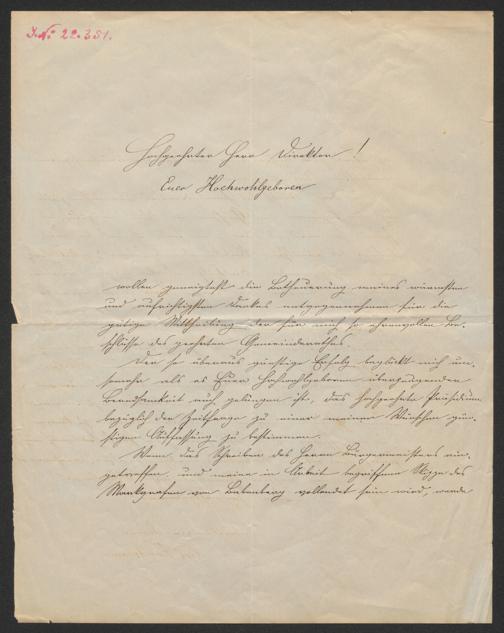 J.N: 22.381.
Hochgeehrter Herr Direktor!
Euer Hochwohlgeboren
wollen geneigtest die Betheuerung meines wärmsten
und aufrichtigsten Dankes entgegennehmen für die
gütige Mittheilung der für mich so ehrenvollen Be-
schlüsse des geehrten Gemeinderathes.
Der so überaus günstige Erfolg beglückt mich um-
somehr als es Euer Hochwohlgeboren überzeugenden
Beredsamkeit auch gelungen ist, das hochgeehrte Präsidium
bezüglich der Zeitfrage zu einer meinen Wünschen gün-
stigen Auffassung zu bestimmen.
Wenn das Schreiben des Herrn Bürgermeisters ein-
getroffen und meine in Arbeit begriffene Skizze des
Markgrafen von Babenberg vollendet sein wird, werde